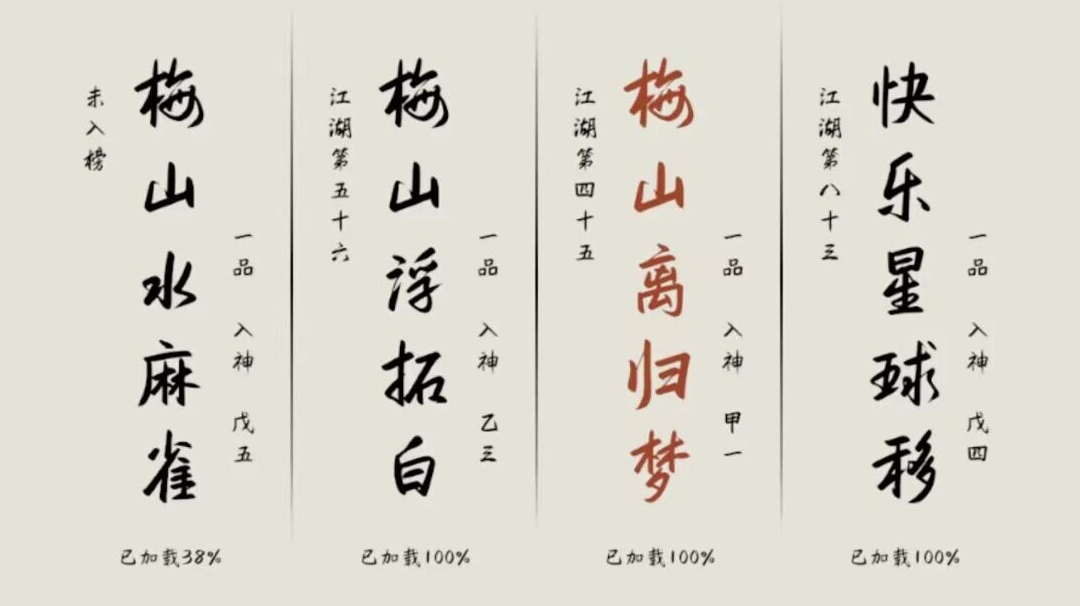 未入榜
梅山水麻雀
一品 入神 戊五
已加载38%
江湖第五十六
梅山浮拓白
一品 入神 乙三
已加载100%
江湖第四十五
梅山离归梦
一品 入神 甲一
已加载100%
江湖第八十三
快乐星球移
一品 入神 戊四
已加载100%